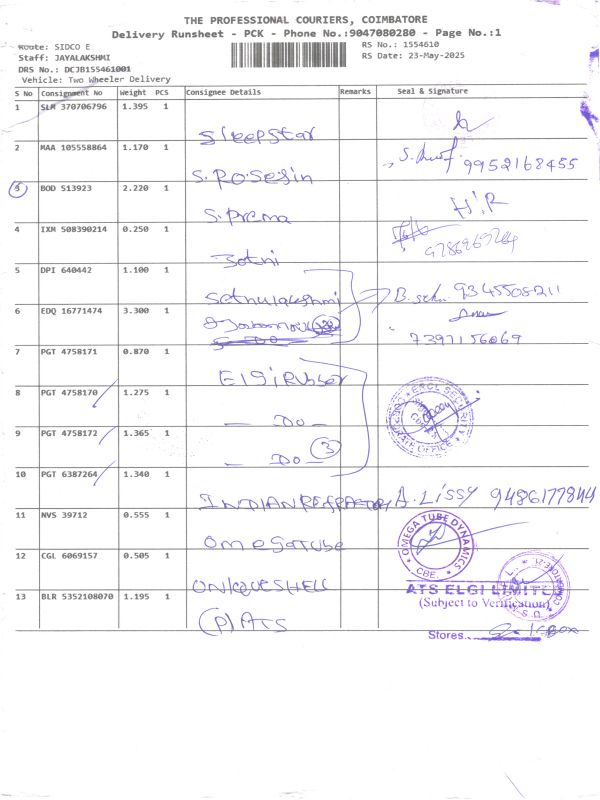 THE PROFESSIONAL COURIERS, COIMBATORE
Delivery Runsheet - PCK - Phone No.:9047080280 - Page No.:1
Route: SIDCO E RS No.: 1554610
Staff: JAYALAKSHMI RS Date: 23-May-2025
DRS No.: DCJB155461001
Vehicle: Two Wheeler Delivery
S No Consignment No Weight PCS Consignee Details Remarks Seal & Signature
1 SLM 370706796 1.395 1
SleepStar
2 MAA 105558864 1.170 1
S. Roselin 9952168455
3 BOD 513923 2.220 1
S. Prema H.R
4 IXM 508390214 0.250 1
5 DPI 640442 1.100 1
Sethulakshmi 9345508211
6 EDQ 16771474 3.300 1
7397156069
7 PGT 4758171 0.870 1
Elgi Rubber
8 PGT 4758170 1.275 1
— Do —
9 PGT 4758172 1.365 1
— Do — 3
10 PGT 6387264 1.340 1
INDIAN REFRACTORY A. Lissy 9486177844
11 NVS 39712 0.555 1
Omega Tube
OMEGA TUBE DYNAMICS
CBE.
12 CGL 6069157 0.505 1
ATS ELGI LIMITED
(Subject to Verification)
13 BLR 5352108070 1.195 1
(P) ATS
Stores